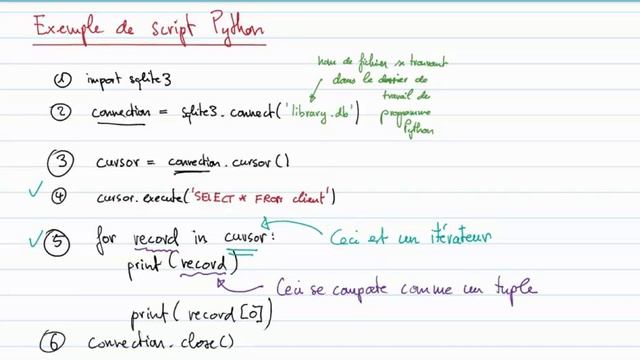 Exemple de script Python
① import sqlite3
nom de fichier se trouvant
dans le dossier de
travail de
programme
Python
② connection = sqlite3.connect('library.db')
③ cursor = connection.cursor()
④ cursor.execute('SELECT * FROM client')
⑤ for record in cursor:
Ceci est un itérateur
print(record)
Ceci se comporte comme un tuple
print(record[0])
⑥ connection.close()